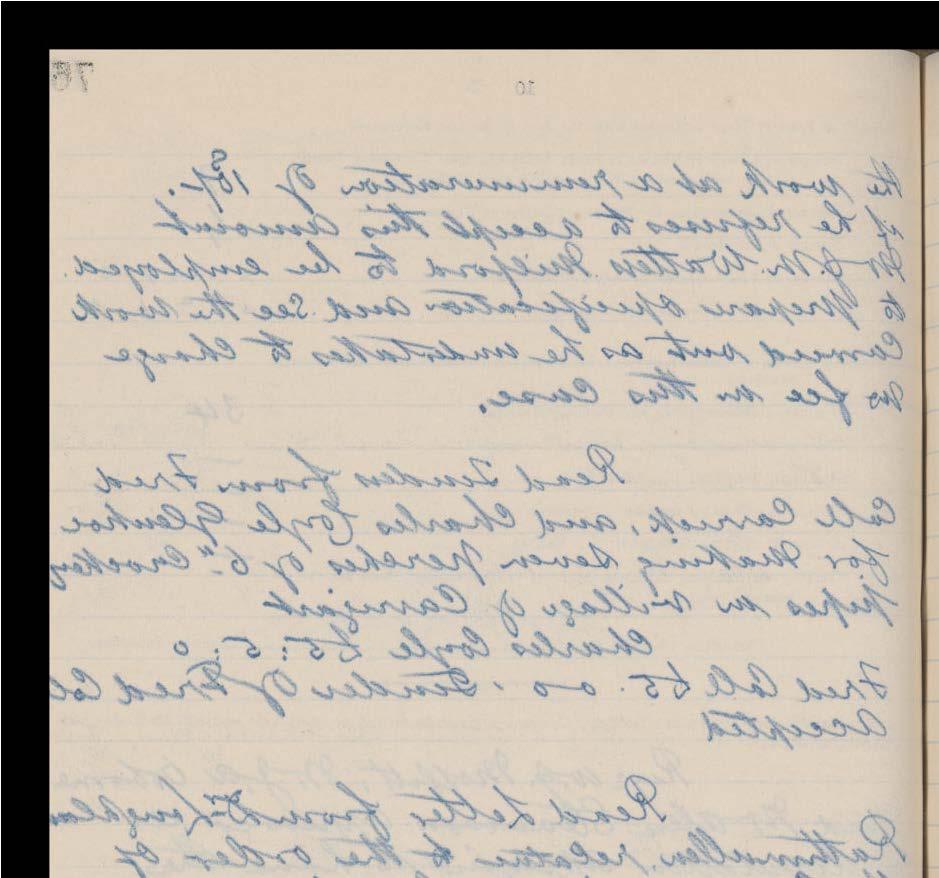 76
10
the work at a remuneration of 18/-.
if he refuses to accept this amount
Mr J. M. Watters Milford to be employed
to prepare specification and see the work
Carried out as he undertakes to charge
no fee in this Case.
34
Read Tender from Fred
Coll Carrick, and Charles Coyle Glenhoe
for Making seven perches of 6" Crockery
pipes in village of Carrigart
Charles Coyle £5:5:0
Fred Coll £5.0.0. Tender of Fred Col
accepted
Read Letter from Dr Loughlin
Rathmullen relative to the order of